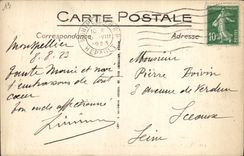 CARTE POSTALE
Correspondance
Adresse
10c
Montpellier
8.8.23
Tante Marie et moi
t'embrassons de tout
cœur
Ton oncle affectionné
Monsieur
Pierre Boivin
3 avenue de Verdun
Sceaux
Seine